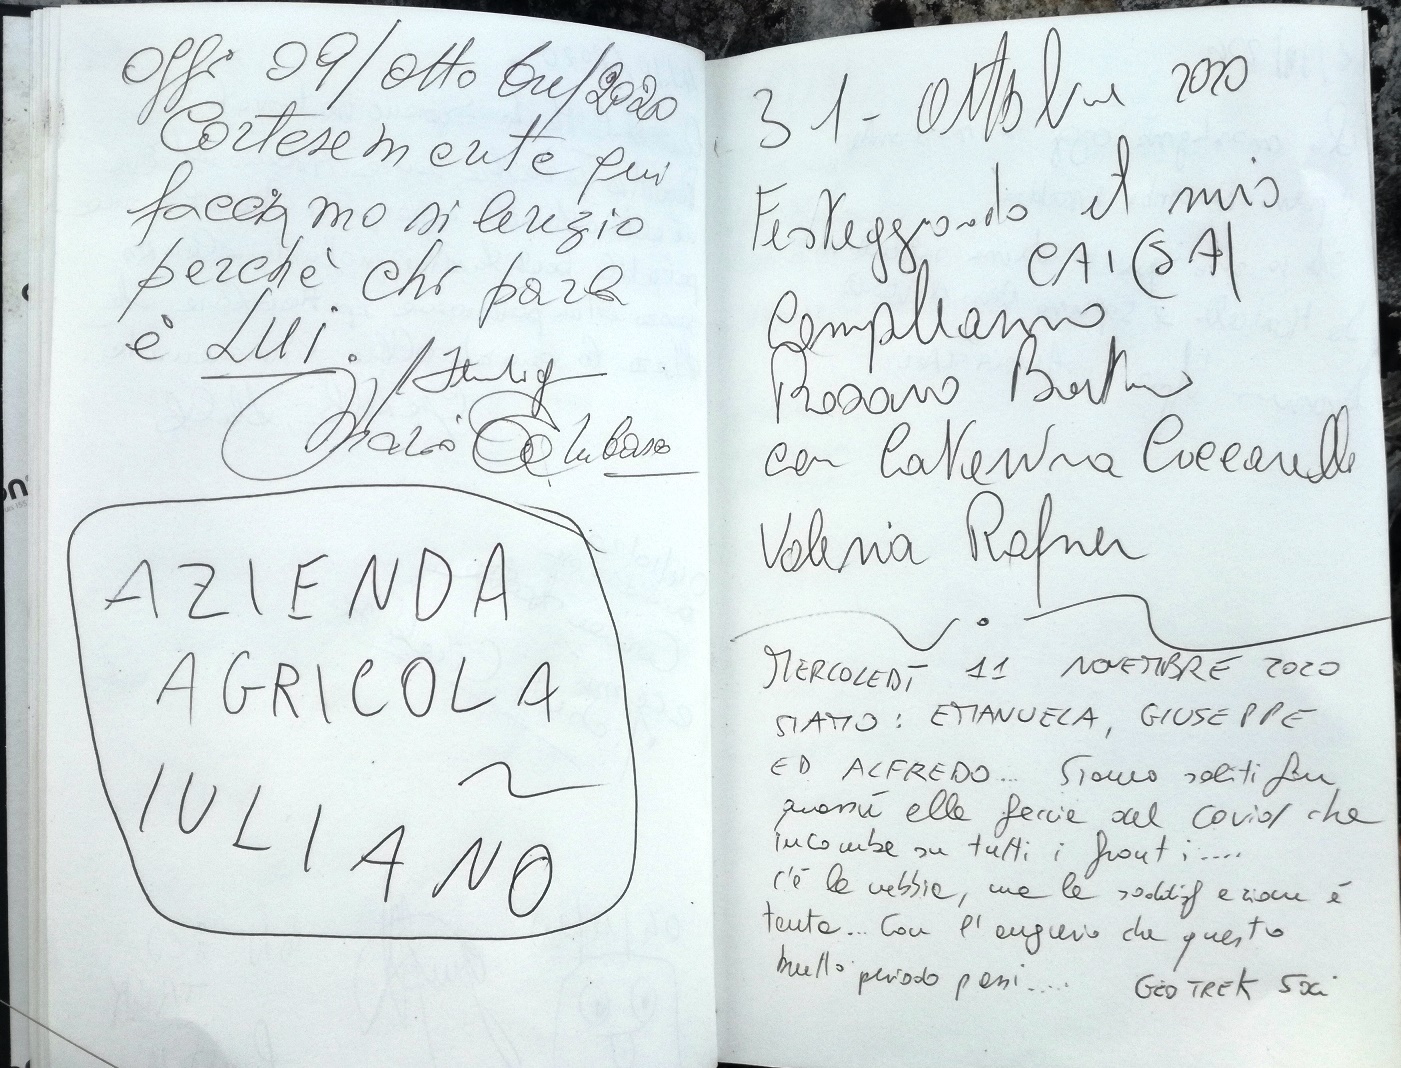 Oggi 09/ottobre/2020
Cortesemente qui
facciamo silenzio
perchè chi parla
è LUI.
AZIENDA
AGRICOLA
IULIANO
31-ottobre 2020
Festeggiando il mio
CAI (SA)
Compleanno
Rosario
con Caterina
Valeria Rafner
MERCOLEDÌ 11 NOVEMBRE 2020
SIAMO: EMANUELA, GIUSEPPE
ED ALFREDO... Siamo saliti fin
quassù alla faccia del Covid che
incombe su tutti i fronti....
c'è la nebbia, ma la soddisfazione è
tanta... Con l'augurio che questo
brutto periodo passi.....
GEOTREK